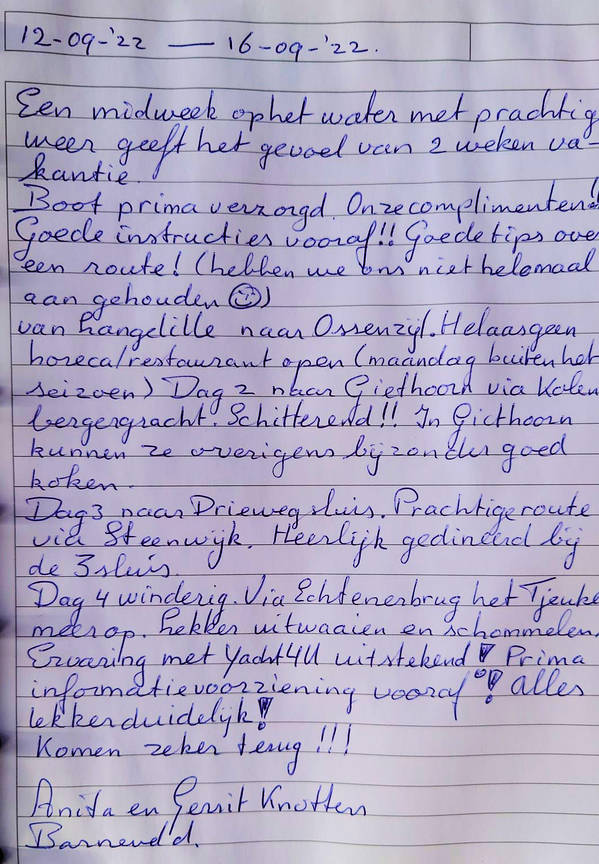 12-09-'22 — 16-09-'22.
Een midweek op het water met prachtig
weer geeft het gevoel van 2 weken va-
kantie.
Boot prima verzorgd. Onze complimenten!
Goede instructies vooraf!! Goede tips ove
een route! (hebben we ons niet helemaal
aan gehouden ☺)
van Langelille naar Ossenzijl. Helaas geen
horeca/restaurant open (maandag buiten het
seizoen) Dag 2 naar Giethoorn via Kalen
bergergracht. Schitterend!! In Giethoorn
kunnen ze overigens bijzonder goed
koken.
Dag 3 naar Driewegsluis. Prachtige route
via Steenwijk. Heerlijk gedineerd bij
de 3sluis.
Dag 4 winderig. Via Echtenerbrug het Tjeuke
meer op. Lekker uitwaaien en schommelen.
Ervaring met Yacht4U uitstekend! Prima
informatievoorziening vooraf! alles
lekker duidelijk!
Komen zeker terug!!!
Anita en Gerrit Knotters
Barneveld.